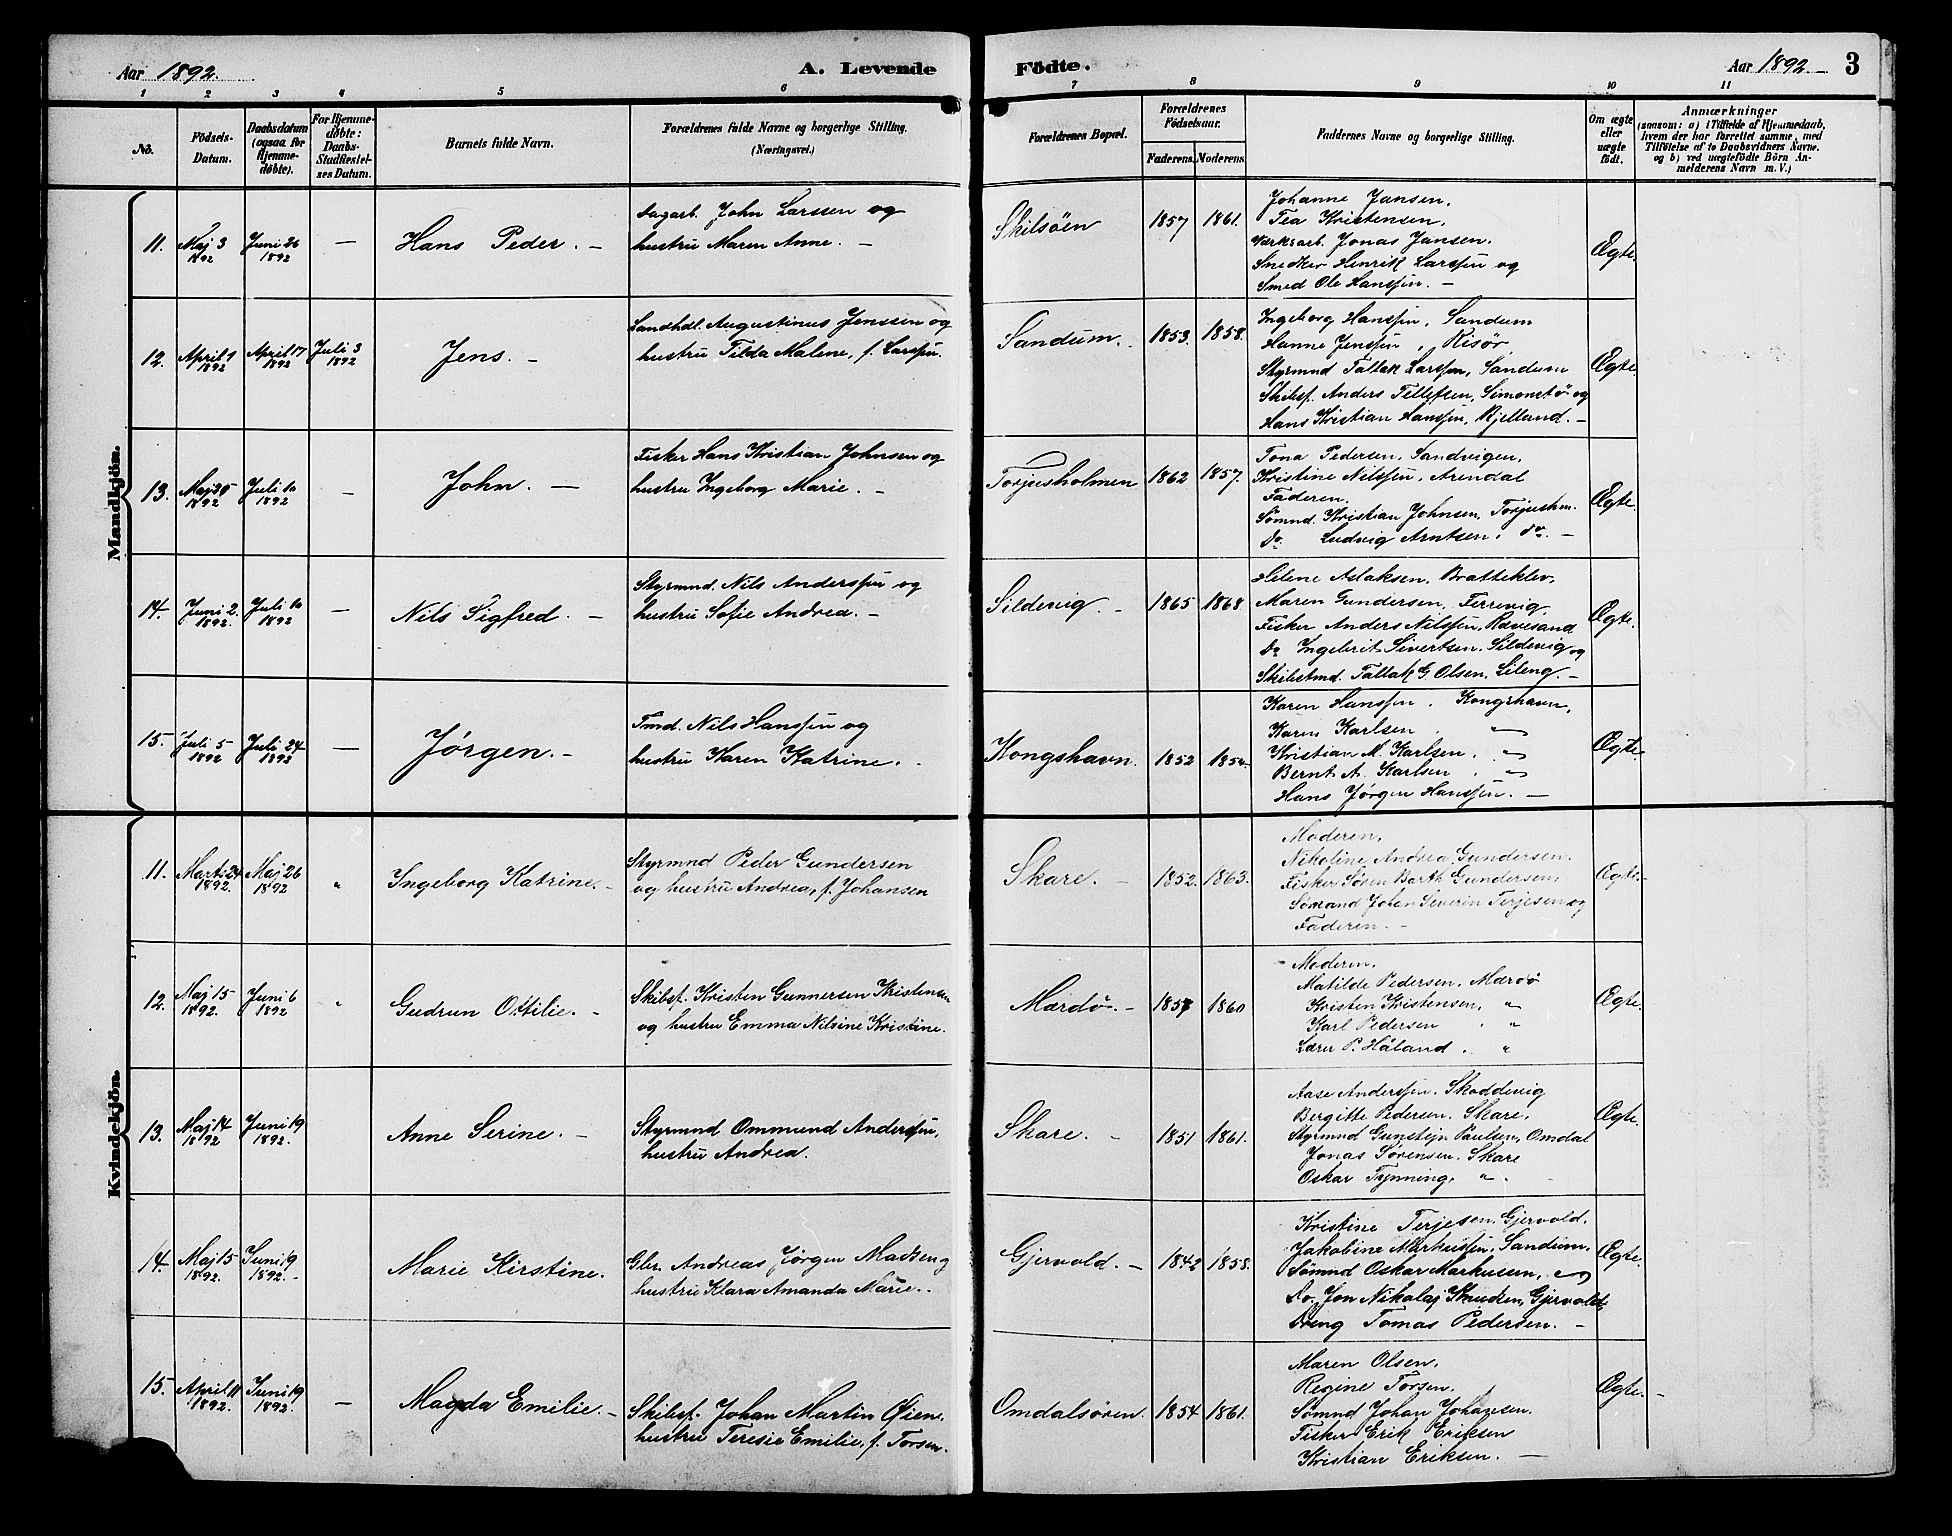 Aar 1892. A. Levende Födte. Aar 1892. 3
1 2 3 4 5 6 7 8 9 10 11
No.
Födsels-
Datum.
Daabsdatum
(ogsaa for
Hjemme-
døbte).
For Hjemme-
døbte:
Daabs-
Stadfæstel-
ses Datum.
Barnets fulde Navn.
Forældrenes fulde Navne og borgerlige Stilling.
(Næringsvei.)
Forældrenes Bopæl.
Forældrenes
Födselsaar.
Faderens. Moderens.
Faddernes Navne og borgerlige Stilling.
Om ægte
eller
uægte
født.
Anmærkninger
(saasom: a) i Tilfælde af Hjemmedaab,
hvem der har forrettet samme, med
Tilföielse af to Daabsvidners Navne.
og b) ved uægtefödte Börn An-
melderens Navn m. V.)
Mandkjön.
11. Maj 3 1892 Juni 26 1892 — Hans Peder. —
Dagarb. John Larssen og
hustru Maren Anne. —
Skilsöen 1857 1861.
Johanne Jansen,
Tea Kristensen,
Værksarb. Jonas Jansen.
Snedker Henrik Larssen og
Smed Ole Hanssen. —
Ægte.
12. April 9 1892 April 17 1892 Juli 3 1892 Jens. —
Landhdl. Augustinus Jenssen og
hustru Tilda Malene, f. Larssen.
Sandum. 1853. 1858.
Ingeborg Hanssen, Sandum
Hanne Jenssen, Risör,
Styrmnd Tallak Larssen, Sandum
Skibsf. Anders Tellefsen, Simonstö og
Hans Kristian Hanssen, Kjelland. —
Ægte.
13. Juli 10 1892 — John. —
Fisker Hans Kristian Johnsen og
hustru Ingeborg Marie. —
Torjusholmen 1862 1857.
Tona Pedersen, Sandvigen,
Kristine Nilssen, Arendal
Faderen,
Sömnd. Kristian Johnsen, Torjushm.
Do. Ludvig Arntsen, do. —
Ægte.
14. Juni 2. 1892. Juli 10 1892 — Nils Sigfred. —
Styrmnd. Nils Anderssen og
hustru Sofie Andrea. —
Sildevig. — 1865 1868
Helene Aslaksen, Bratteklev,
Maren Gundersen, Færevig,
Fisker Anders Nilssen, Rævesand
Do Ingebrit Sivertsen, Sildevig og
Skibstmd. Tallak G. Olsen, Lileng. —
Ægte.
15. Juli 5 1892 Juli 24 1892 — Jørgen. —
Tmd. Nils Hanssen og
hustru Karen Katrine. .
Kongshavn. 1852 1854.
Karen Hanssen. Kongshavn,
Karen Karlsen. "
Kristian M. Karlsen. "
Bernt A. Karlsen. "
Hans Jørgen Hanssen. —
Ægte.
Kvindekjön.
11. Marts 24 1892. Maj 26 1892 " Ingeborg Katrine. —
Styrmnd Peder Gundersen
og hustru Andrea, f. Johansen
Skare. — 1852. 1863.
Moderen,
Nikoline Andrea Gundersen.
Fisker Søren Barth Gundersen,
Sömand Johan Severin Terjesen og
Faderen. —
Ægte. —
12. Maj 15 1892. Juni 6 1892 " Gudrun Ottilie. —
Skibsf. Kristen Gunnersen Kristensen
og hustru Emma Nilsine Kristine.
Mærdö. — 1857 1860
Moderen.
Matilde Pedersen, Mærdö
Kristen Kristensen, "
Karl Pedersen "
Lærer P. Håland. "
Ægte.
13. Maj 14 1892 Juni 19 1892. Anne Serine. —
Styrmnd Ommund Anderssen,
hustru Andrea.
Skare. — 1851 1861.
Aase Anderssen. Skoddevig
Bergitte Pedersen. Skare,
Styrmnd Gunstejn Paulsen, Omdal
Jonas Sørensen. Skare
Oskar Tynning. " .
Ægte.
14. Maj 15 1892. Juni 19 1892. — Marie Kirstine.
Glr. Andreas Jørgen Madsen og
hustru Klara Amanda Marie. .
Gjervold. — 1842 1858.
Kristine Terjesen, Gjervold,
Jakobine Markussen, Sandum,
Sömnd Oskar Markusen, "
Do. Jon Nikolaj Knudsen, Gjervold,
Dreng Tomas Pedersen. —
Ægte.
15. April 11 1892. Juni 19 1892. — Magda Emilie. —
Skibsf. Johan Martin Øien.
hustru Teresie Emilie, f. Torsen.
Omdalsören. 1854 1861.
Maren Olsen,
Regine Torsen,
Sömnd Johan Johansen.
Fisker Erik Eriksen
Kristian Eriksen. —
Ægte. —